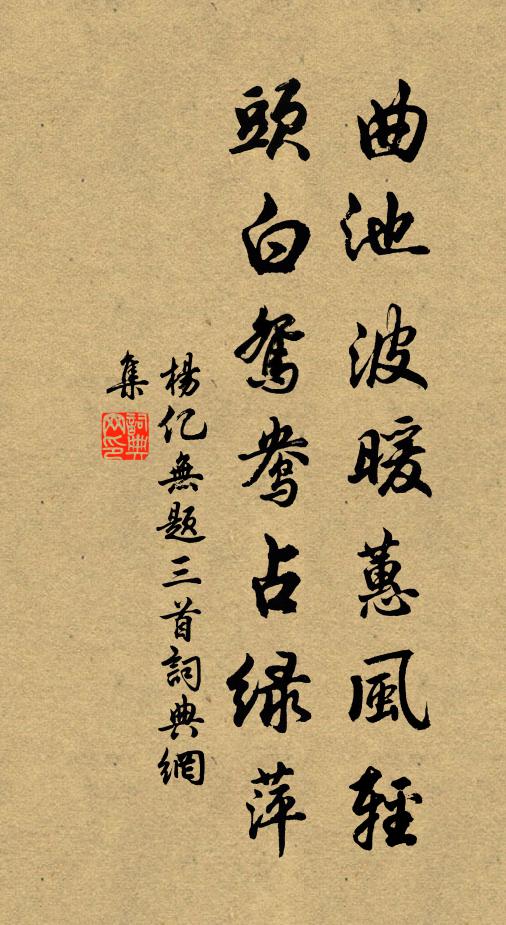 曲池波暖蕙風輕
頭白鴛鴦占綠萍
楊亿無题三首詞典網
集
詞典網印